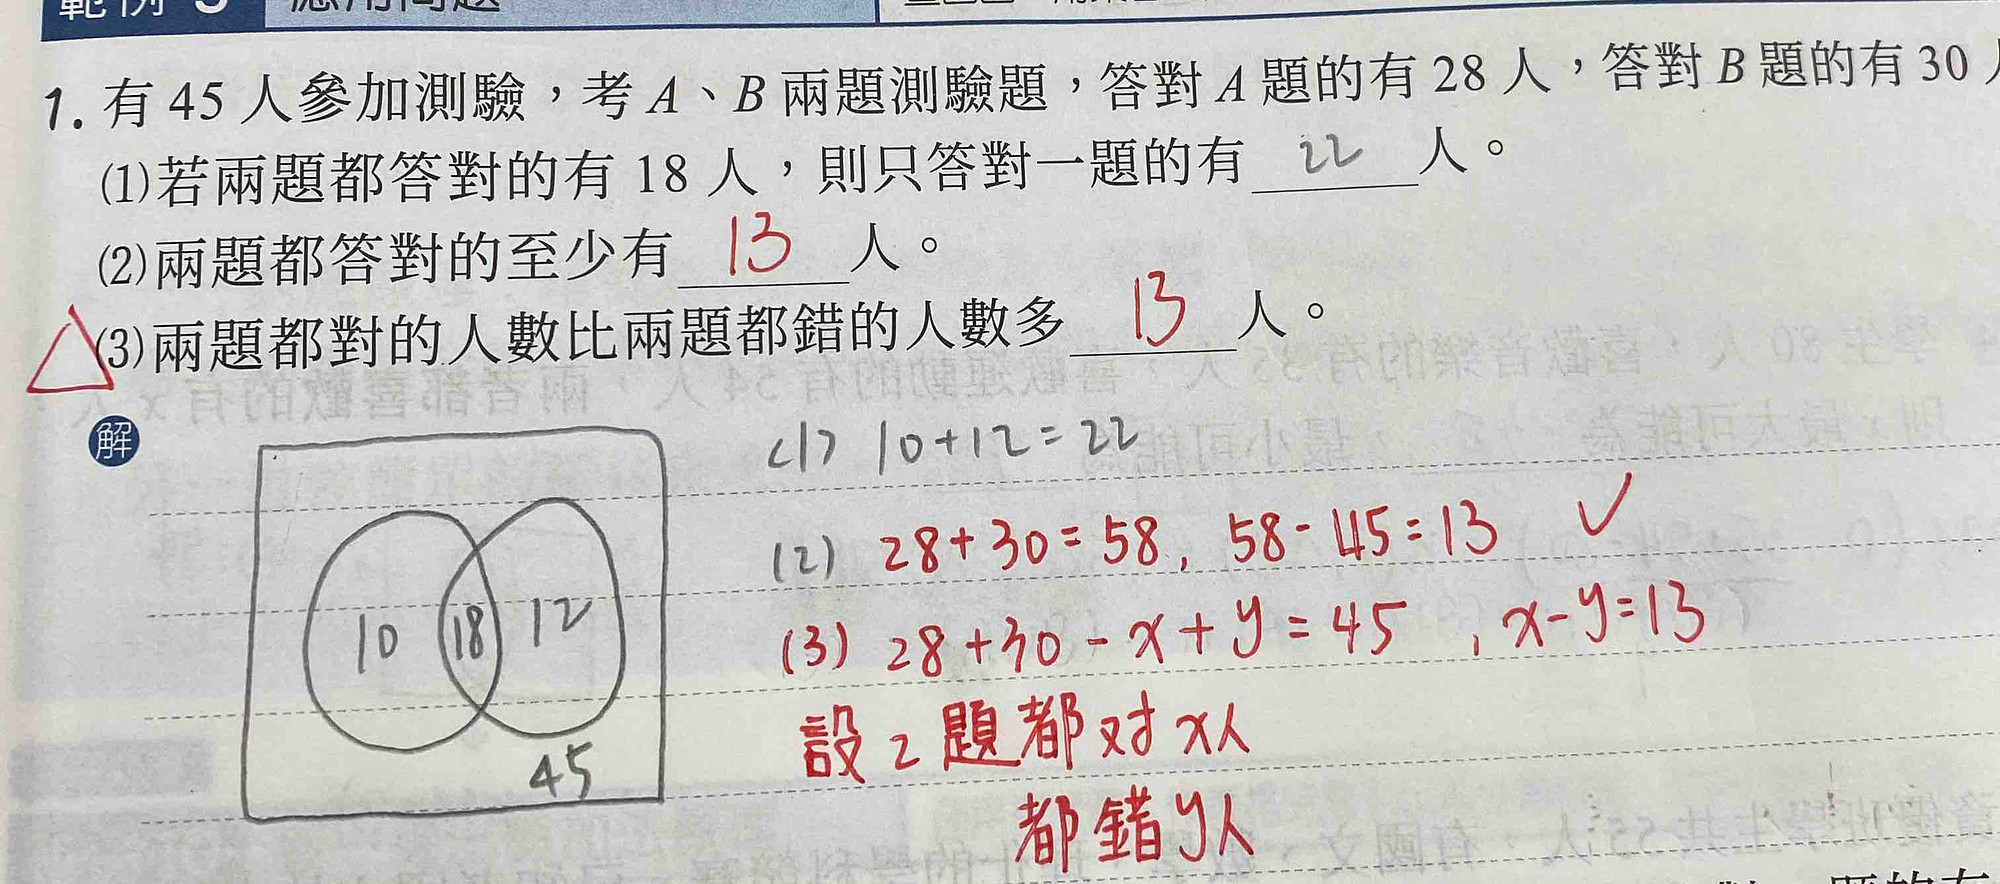 1. 有 45 人參加測驗，考 A、B 兩題測驗題，答對 A 題的有 28 人，答對 B 題的有 30
(1)若兩題都答對的有 18 人，則只答對一題的有 22 人。
(2)兩題都答對的至少有 13 人。
(3)兩題都對的人數比兩題都錯的人數多 13 人。
解
10 18 12
45
(1) 10+12=22
(2) 28+30=58, 58-45=13 ✓
(3) 28+30-x+y=45 , x-y=13
設2題都对x人
都錯y人